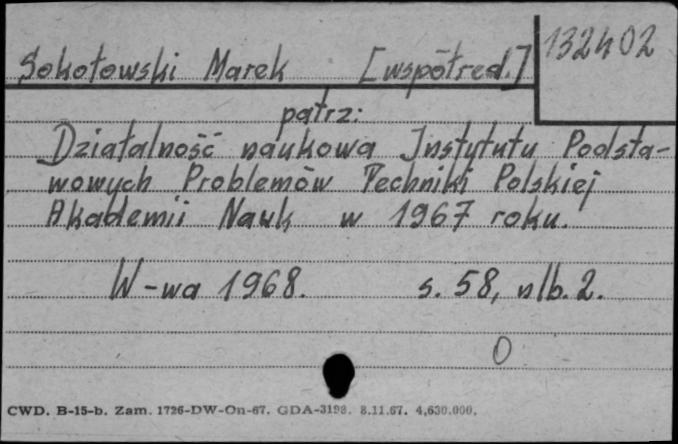 132402
Sokołowski Marek [współred.]
patrz:
Działalność naukowa Instytutu Podsta-
wowych Problemów Techniki Polskiej
Akademii Nauk w 1967 roku.
W-wa 1968. s. 58, nlb. 2.
0
CWD. B-15-b. Zam. 1726-DW-On-67. GDA-3198. 8.11.67. 4,630.000.